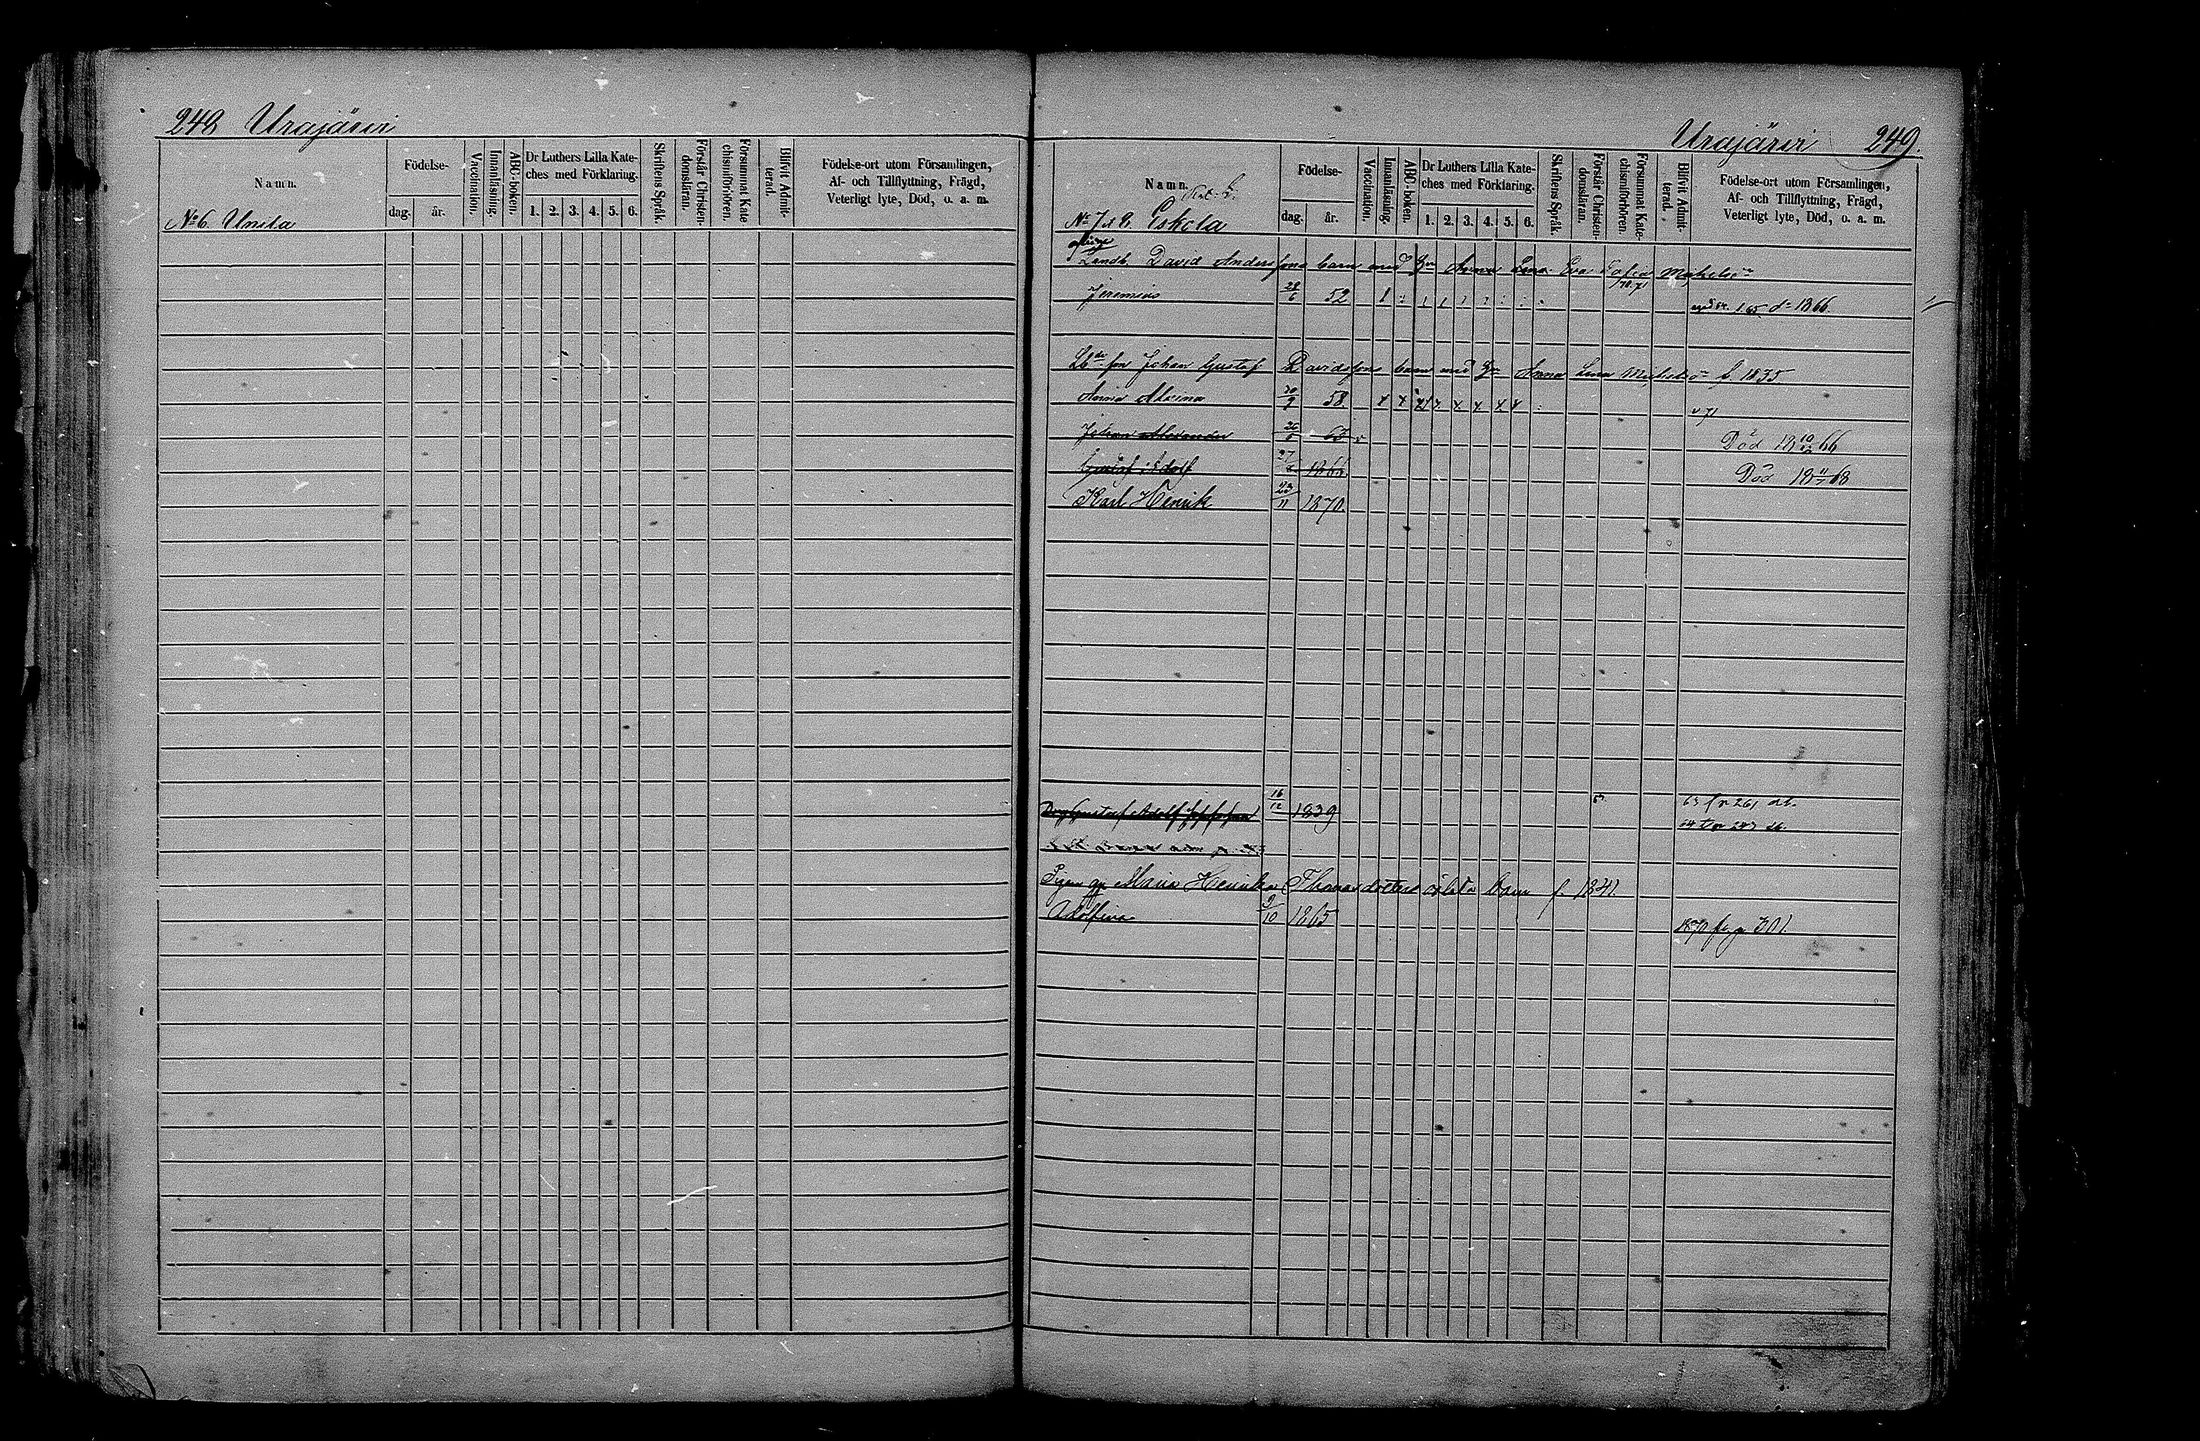 248 Urajärvi
Namn.
Födelse-
dag. år.
Vaccination.
Innanläsning.
ABC-boken.
Dr Luthers Lilla Kate-
ches med Förklaring.
1. 2. 3. 4. 5. 6.
Skriftens Språk.
Förstår Christen-
domsläran.
Försummat Kate-
chismiförhören.
Blifvit Admit-
terad.
Födelse-ort utom Församlingen,
Af- och Tillflyttning, Frägd,
Veterligt lyte, Död, o. a. m.
No 6. Unila
Urajärvi 249.
Namn.
Födelse-
dag. år.
Vaccination.
Innanläsning.
ABC-boken.
Dr Luthers Lilla Kate-
ches med Förklaring.
1. 2. 3. 4. 5. 6.
Skriftens Språk.
Förstår Christen-
domsläran.
Försummat Kate-
chismiförhören.
Blifvit Admit-
terad.
Födelse-ort utom Församlingen,
Af- och Tillflyttning, Frägd,
Veterligt lyte, Död, o. a. m.
Eskola
Landb. David Anderssons barn med Anna Lena Eva Sofia
Jeremias 28/6 52 1866.
Johan Gustaf Davidssons barn med Anna Lena f. 1835
Anna 58
Johan Alexander 26 63 Död 18 10/12 66
Gustaf Adolf 27 1866. Död 18 68
Karl Henrik 23/11 1870.
Gustaf Adolf 16/12 1839 63 fr 261
Pigan Maria Henrika Thomasdotters oäkta barn f. 1841.
Adolfina 9/10 1865 301.